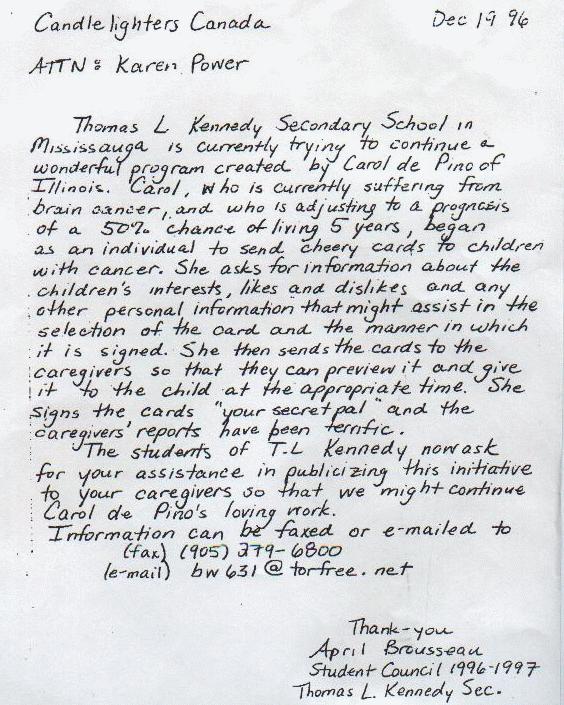 Candlelighters Canada
Dec 19 96
ATTN: Karen Power
Thomas L Kennedy Secondary School in
Mississauga is currently trying to continue a
wonderful program created by Carol de Pino of
Illinois. Carol, who is currently suffering from
brain cancer, and who is adjusting to a prognosis
of a 50% chance of living 5 years, began
as an individual to send cheery cards to children
with cancer. She asks for information about the
children's interests, likes and dislikes and any
other personal information that might assist in the
selection of the card and the manner in which
it is signed. She then sends the cards to the
caregivers so that they can preview it and give
it to the child at the appropriate time. She
signs the cards "your secret pal" and the
caregivers' reports have been terrific.
The students of T.L Kennedy now ask
for your assistance in publicizing this initiative
to your caregivers so that we might continue
Carol de Pino's loving work.
Information can be faxed or e-mailed to
(fax) (905) 279-6800
(e-mail) bw631@torfree.net
Thank-you
April Brousseau
Student Council 1996-1997
Thomas L. Kennedy Sec.